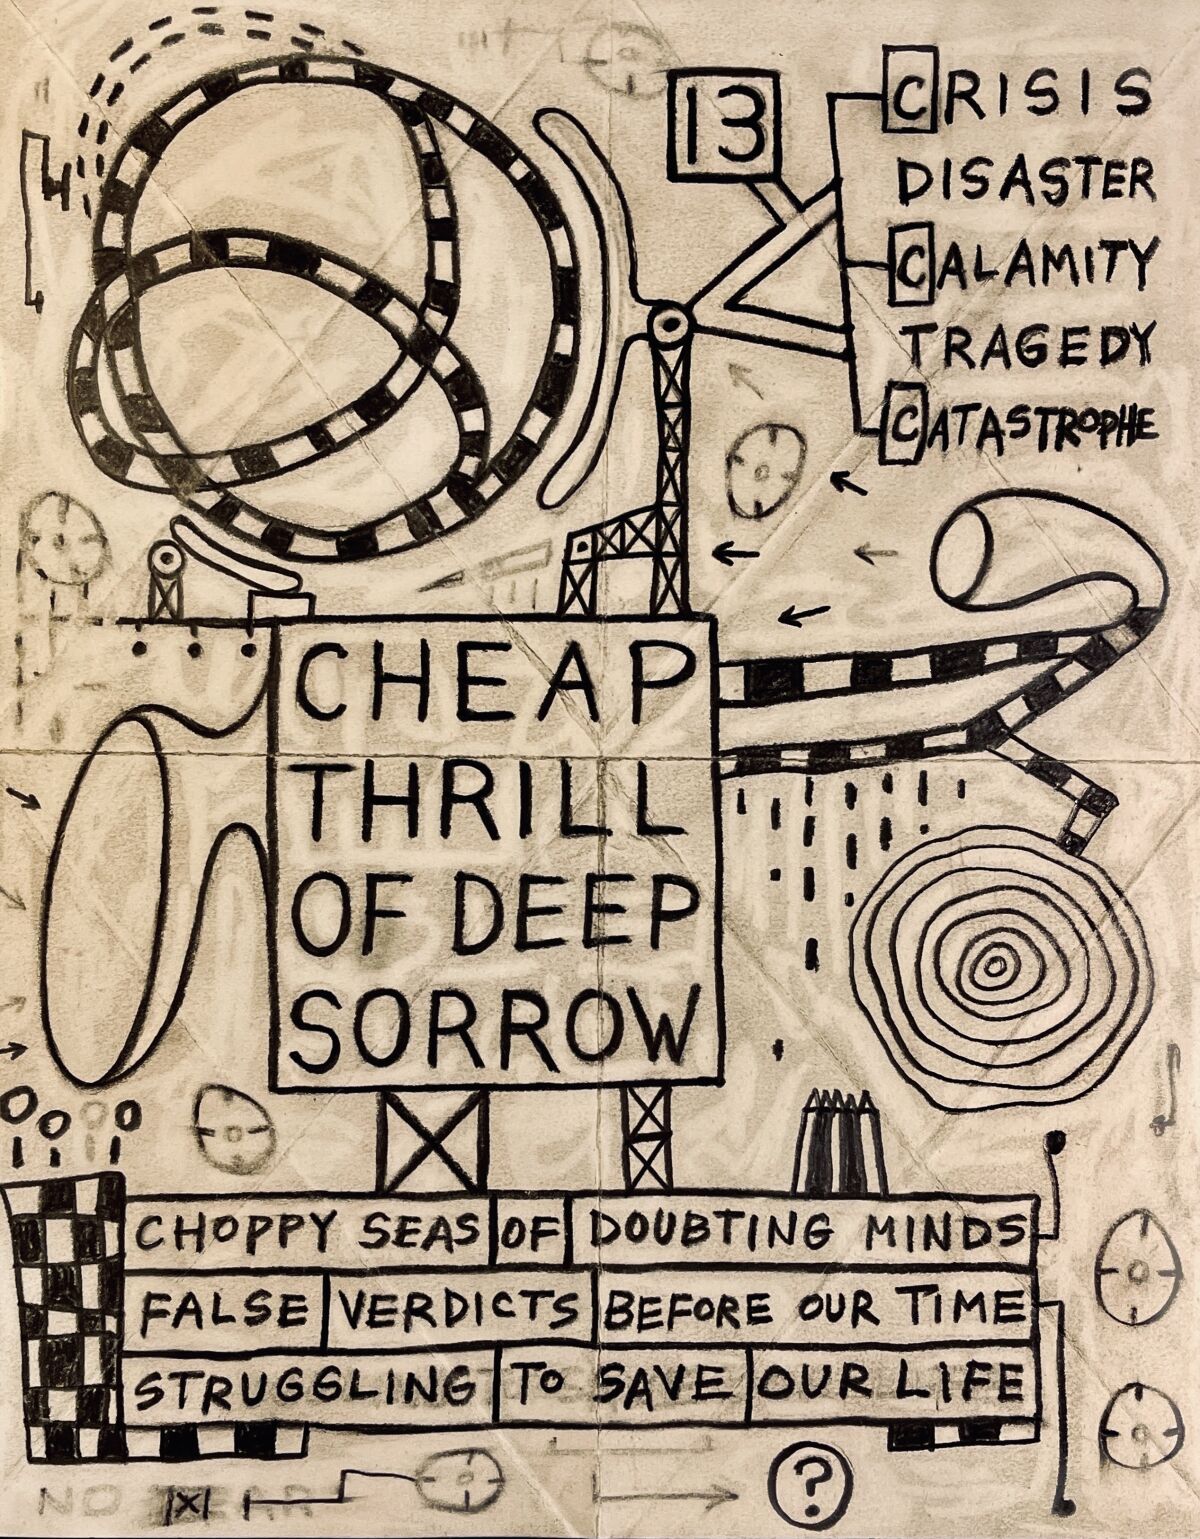 13
CRISIS
DISASTER
CALAMITY
TRAGEDY
CATASTROPHE
CHEAP
THRILL
OF DEEP
SORROW
CHOPPY SEAS OF DOUBTING MINDS
FALSE VERDICTS BEFORE OUR TIME
STRUGGLING TO SAVE OUR LIFE
?
NO